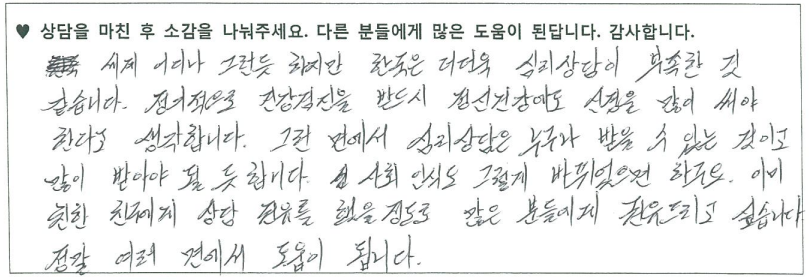 ♥ 상담을 마친 후 소감을 나눠주세요. 다른 분들에게 많은 도움이 된답니다. 감사합니다.
세계 어디나 그런듯 하지만 한국은 더더욱 심리상담이 부족한 것
같습니다. 정기적으로 건강검진을 받드시 정신건강에도 신경을 많이 써야
한다고 생각합니다. 그런 면에서 심리상담은 누구나 받을 수 있는 것이고
많이 받아야 될 듯 합니다. 사회 인식도 그렇게 바뀌었으면 하구요. 이미
친한 친구에게 상담 권유를 했을 정도로 많은 분들에게 권유드리고 싶습니다
정말 여러 면에서 도움이 됩니다.